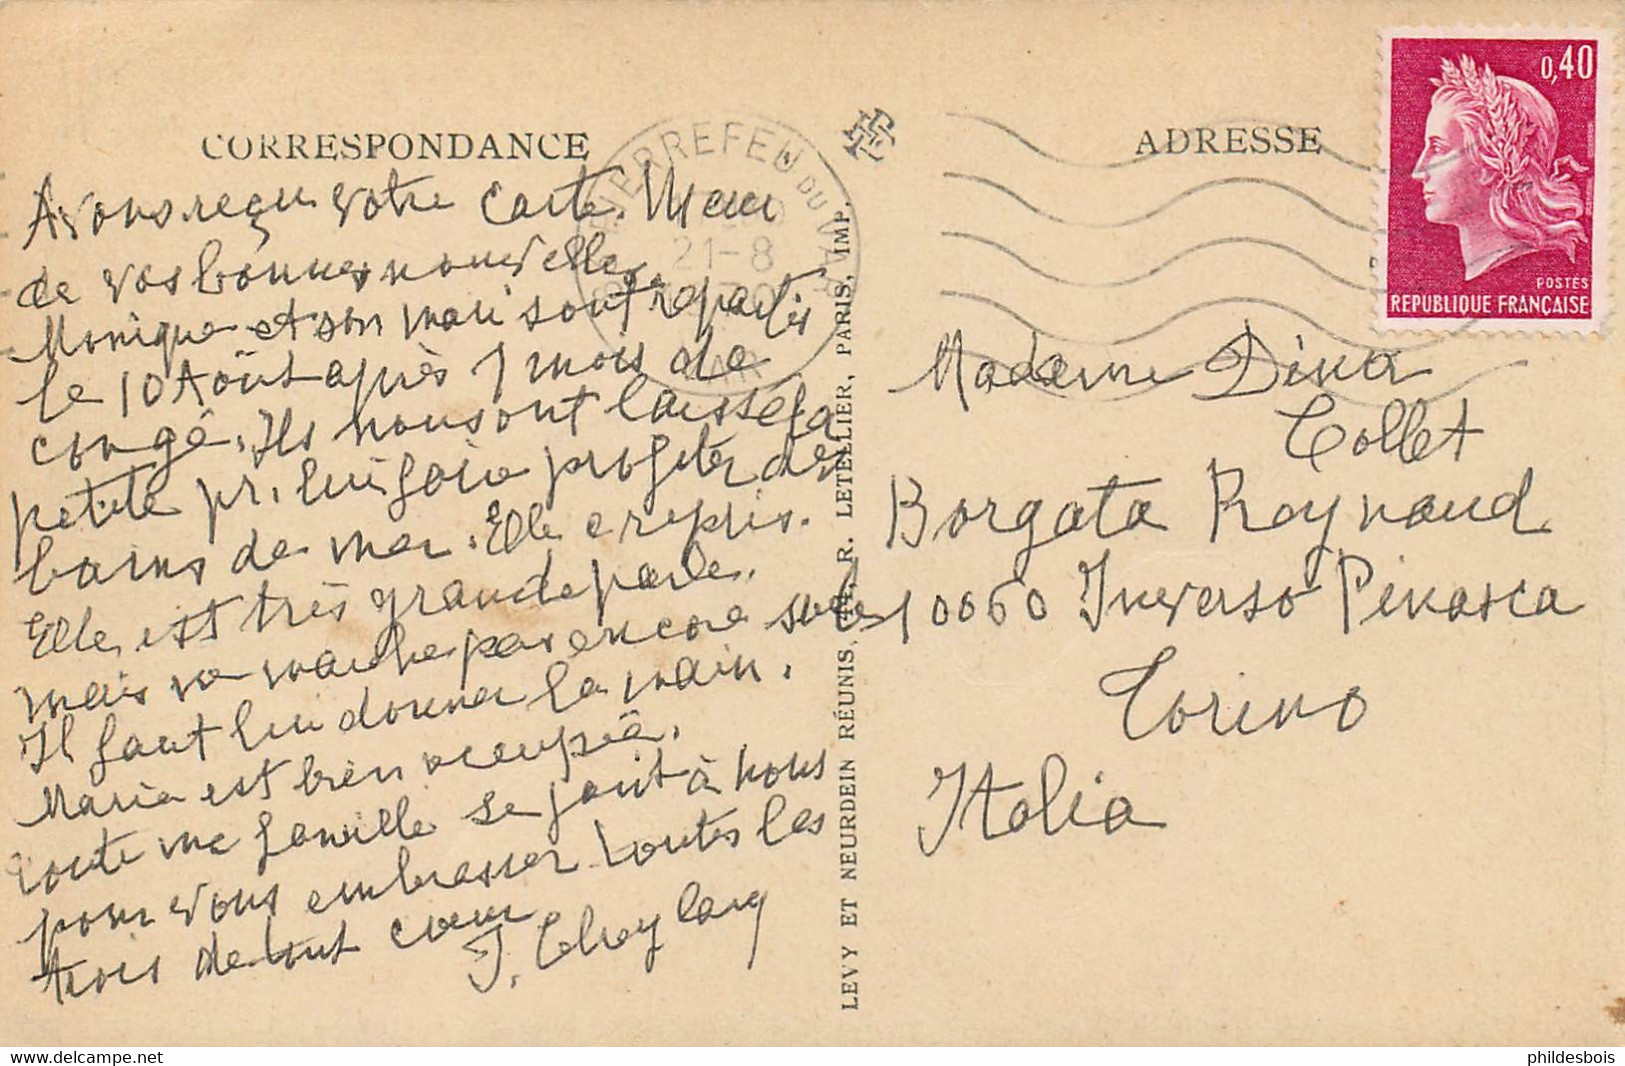 CORRESPONDANCE
Avons reçu votre carte. Merci
de vos bonnes nouvelles
Monique et son mari sont repartis
le 10 Août après 1 mois de
congé. Ils nous ont laissé la
petite pr. lui faire profiter des
bains de mer. Elle a repris.
Elle est très grande parle.
mais ne marche pas encore seule
Il faut lui donner la main.
Maria est bien occupée.
toute ma famille se joint à nous
pour vous embrasser toutes les
trois de tout cœur
J.
PIERREFEU DU VAR
21-8
VAR
LEVY ET NEURDEIN RÉUNIS, R. LETELLIER, PARIS, IMP.
ADRESSE
0,40
POSTES
REPUBLIQUE FRANÇAISE
Madame Dina
Collet
Borgata Reynaud
10060 Inverso Pinasca
Torino
Italia
phildesbois